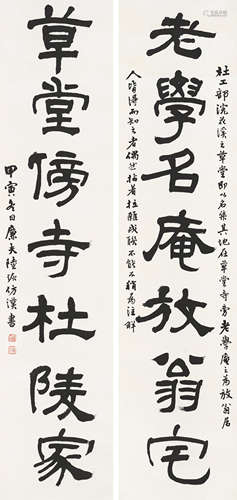 杜工部浣花溪之草堂即以名集其地在草堂寺旁老學庵之為放翁居
老學名庵放翁宅
人皆得而知之者偶然拈著拉雜成聯不能不稍為注解
草堂傍寺杜陵家
甲寅冬日廉夫陸恢仿漢書